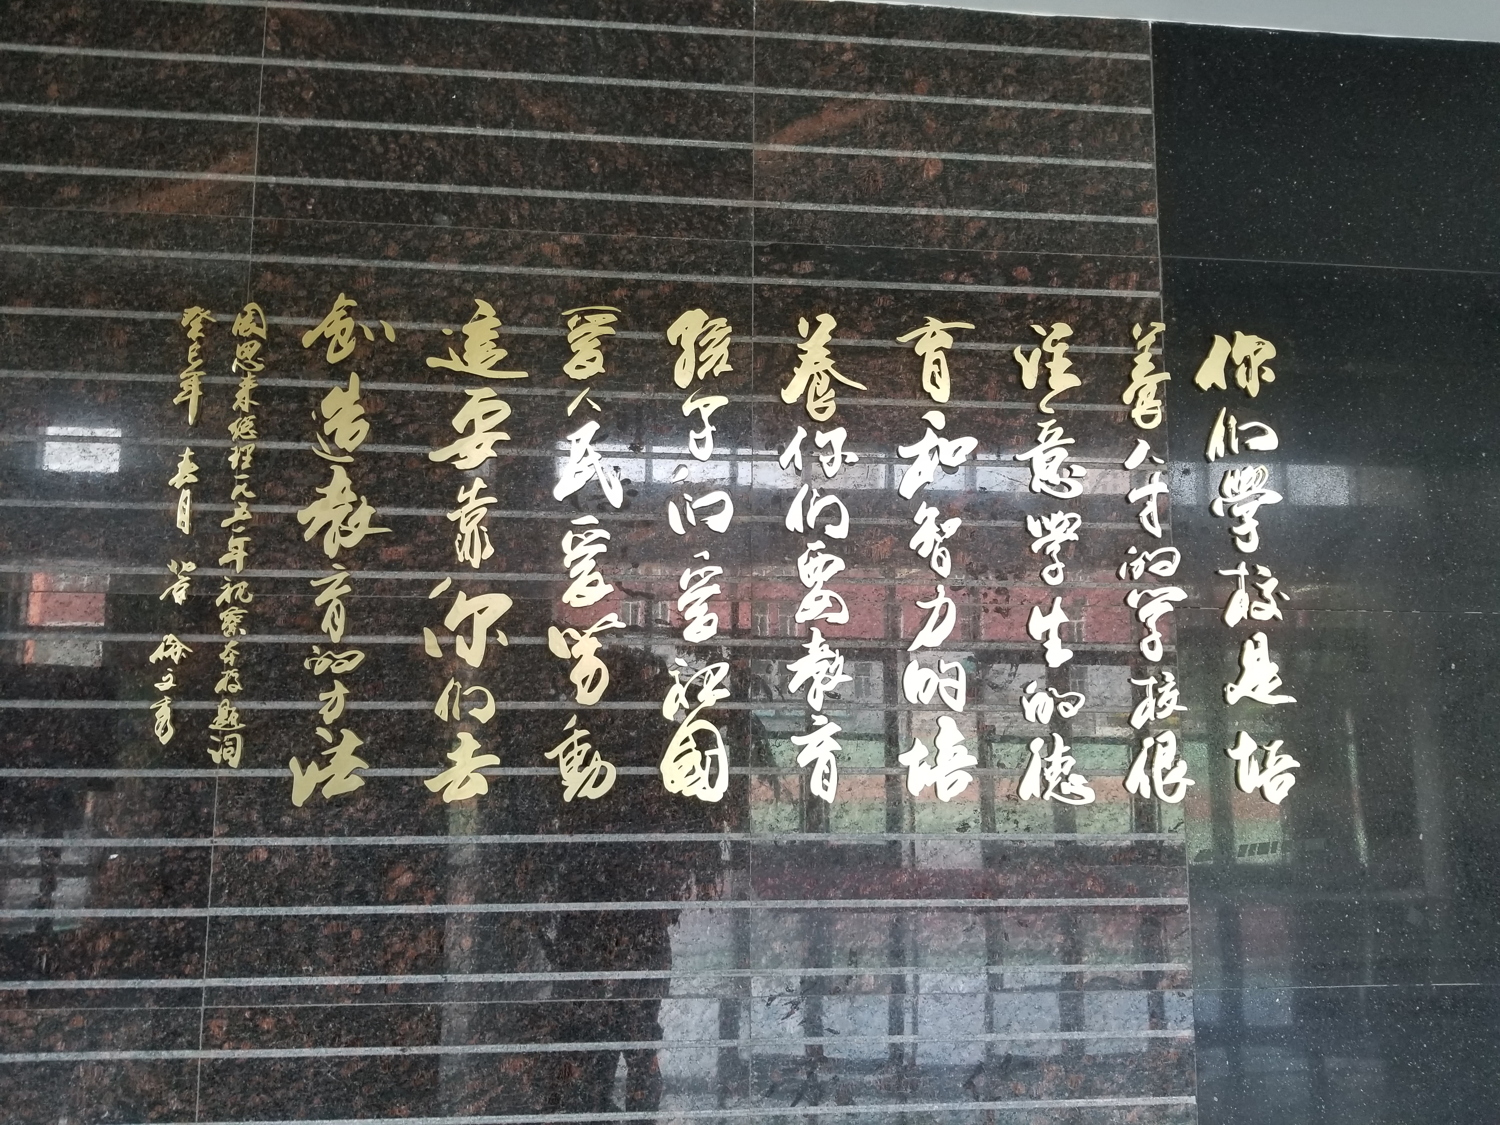 你们學校是培
養人才的学校很
注意學生的德
育和智力的培
養你们要教育
孩子们爱祖國
爱人民爱劳動
這要靠你们去
創造教育的方法
周恩来總理一九五一年視察本校題詞
癸巳年 春月 若 徐